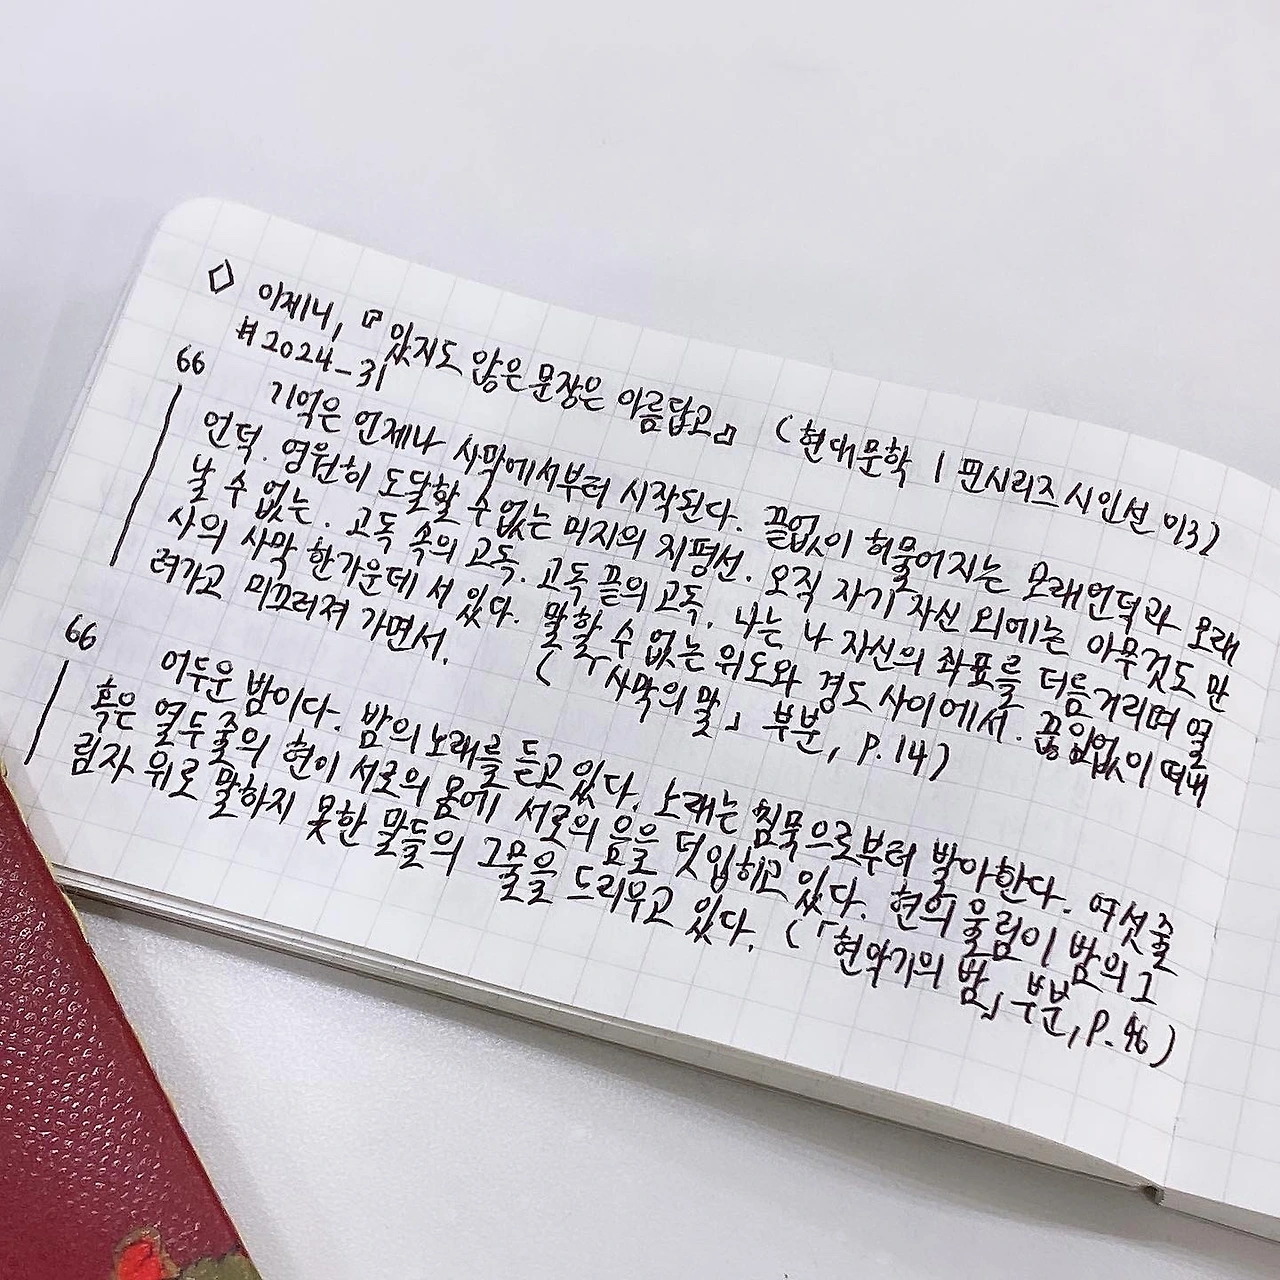 ◇ 이제니, 『있지도 않은 문장은 아름답고』 (현대문학 | 핀시리즈 시인선 013)
#2024-31
66 기억은 언제나 사막에서부터 시작된다. 끝없이 허물어지는 모래언덕과 모래
언덕. 영원히 도달할 수 없는 미지의 지평선. 오직 자기 자신 외에는 아무것도 만
날 수 없는. 고독 속의 고독. 고독 끝의 고독. 나는 나 자신의 좌표를 더듬거리며 열
사의 사막 한가운데 서 있다. 말할 수 없는 위도와 경도 사이에서. 끊임없이 떠내
려가고 미끄러져 가면서. (「사막의 말」 부분, p.14)
66 어두운 밤이다. 밤의 노래를 듣고 있다. 노래는 침묵으로부터 발아한다. 여섯 줄
혹은 열두 줄의 현이 서로의 몸에 서로의 음을 덧입히고 있다. 현의 울림이 밤의 그
림자 위로 말하지 못한 말들의 그물을 드리우고 있다. (「현악기의 밤」 부분, p.46)